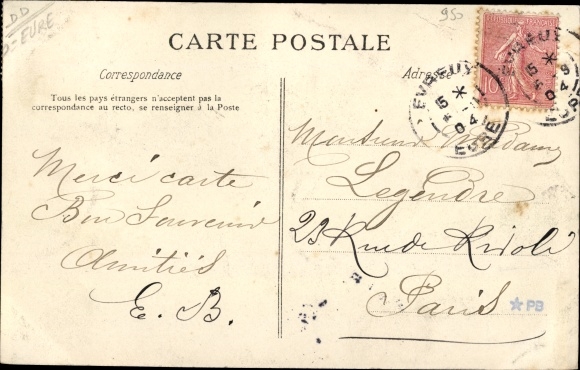 DD
D-EURE
950
CARTE POSTALE
Correspondance
Tous les pays étrangers n'acceptent pas la
correspondance au recto, se renseigner à la Poste
Merci carte
Bon Souvenir
Amitiés
E. B.
Adresse
REPUBLIQUE FRANÇAISE
10
EVREUX
15
04
EURE
EVREUX
15
04
Monsieur Madame
Legendre
23 Rue de Rivoli
Paris
PB